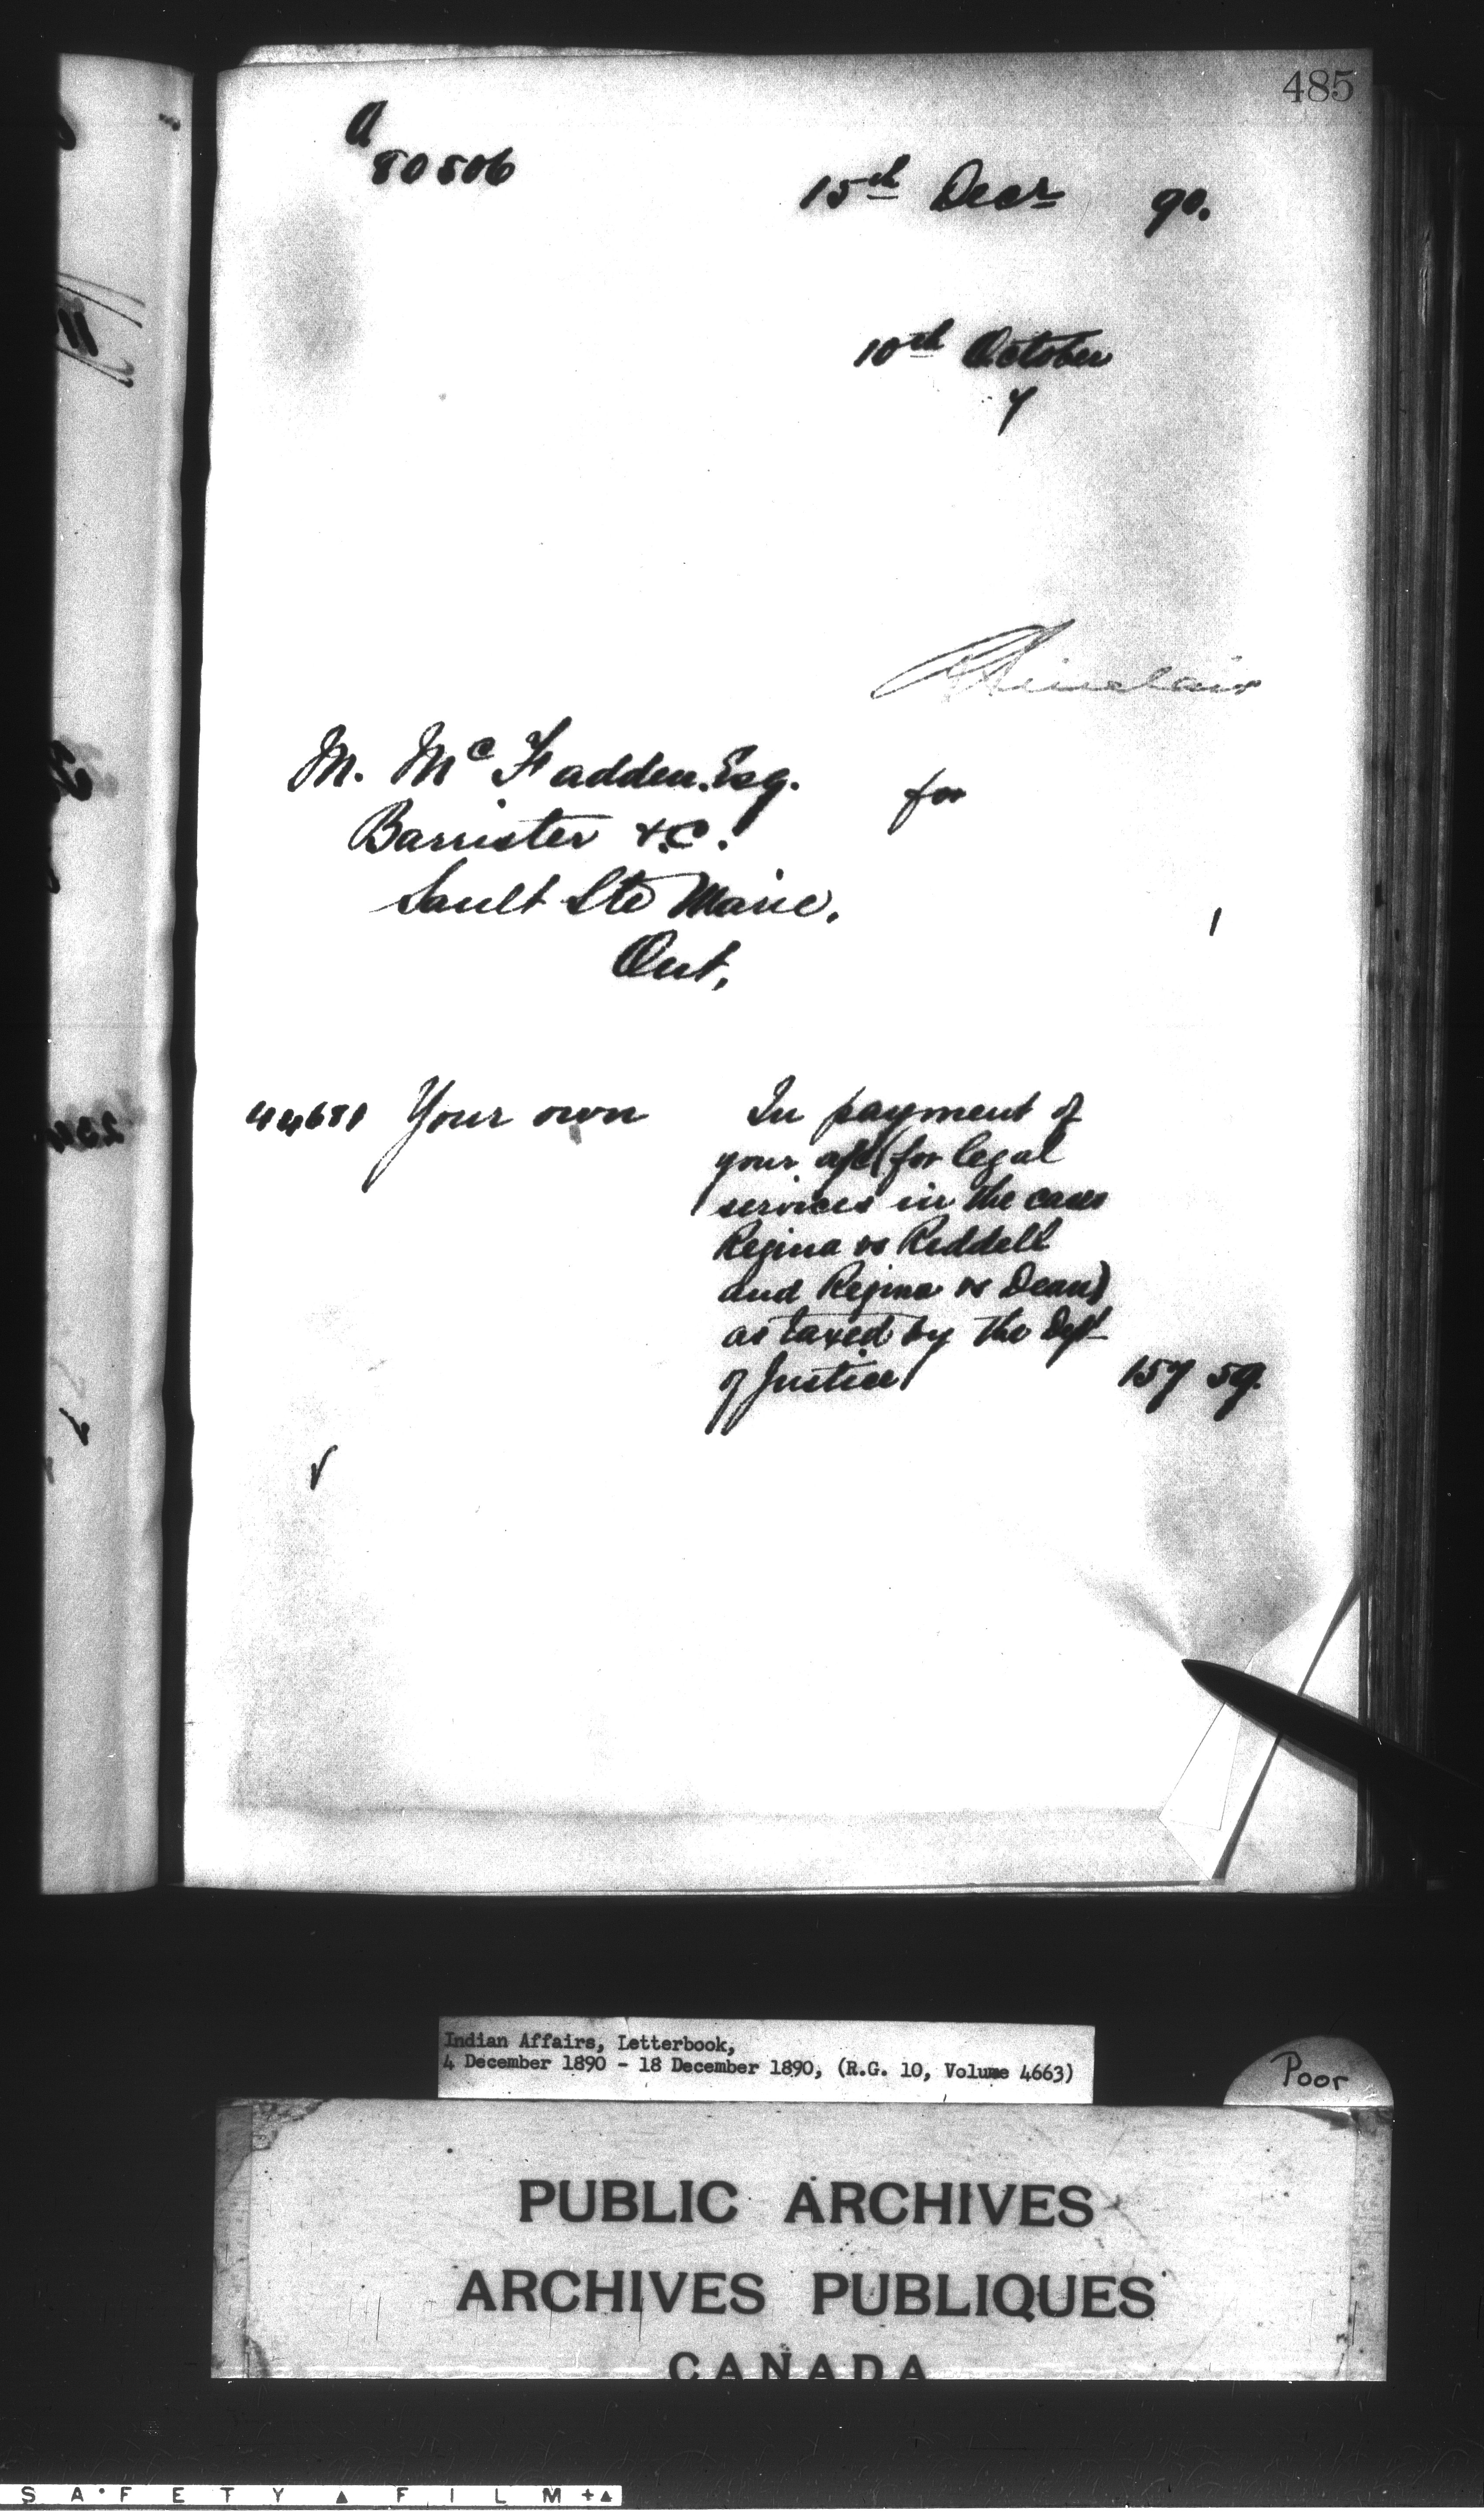 485
A
80506
15th Decr 90.
10th October
y
Sinclair
M. McFadden. Esq. for
Barrister &.C.
Sault Ste Marie.
Ont,
1
44681 Your own In payment of
your a/c (for legal
services in the cases
Regina vs Riddell
and Regina vs Dean)
as taxed by the Dept
of Justice 157 59.
Indian Affairs, Letterbook,
4 December 1890 - 18 December 1890, (R.G. 10, Volume 4663)
Poor
PUBLIC ARCHIVES
ARCHIVES PUBLIQUES
CANADA
SAFETY FILM